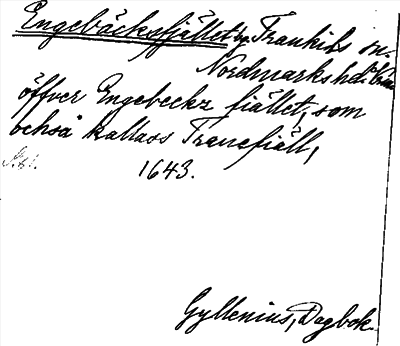 Engebäcksfjället, Trankils sn
Nordmarks hd
öffver Engebeckz fiället, som
ochså kallass Tranefiäll,
1643.
Gyllenius, Dagbok.